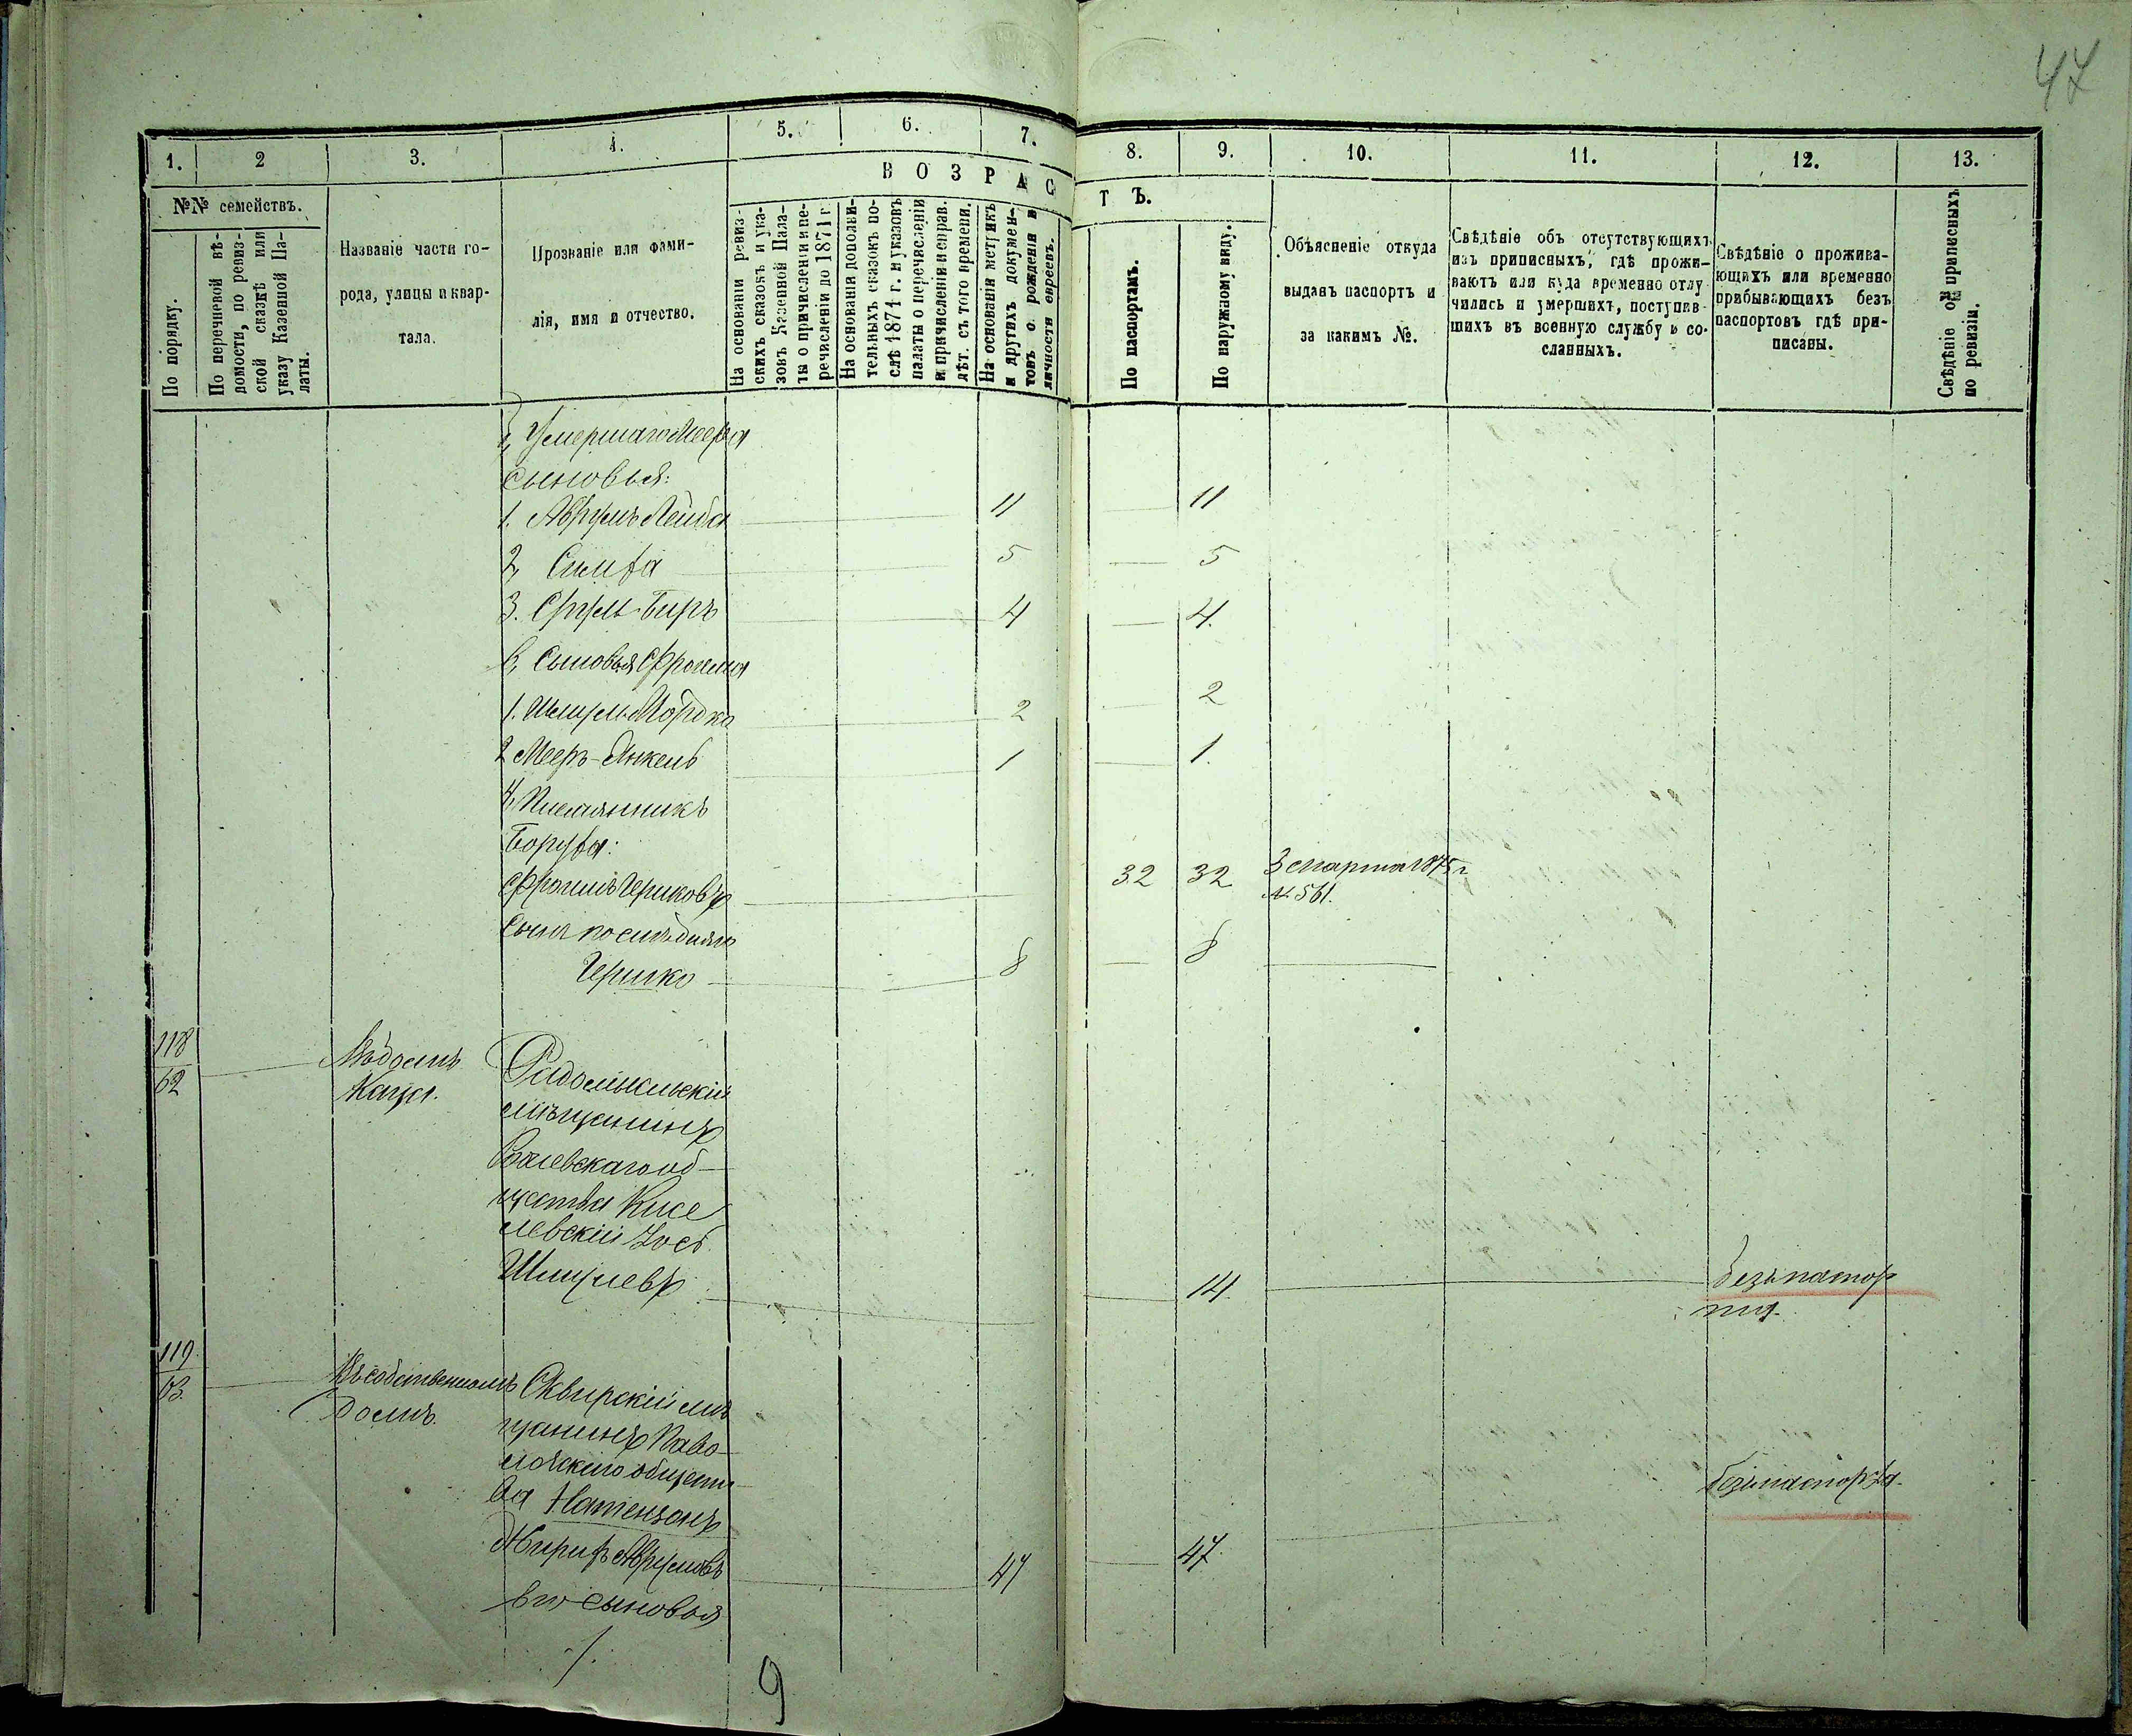 47
1.
2
3.
4.
5.
6.
7.
8.
9.
10.
11.
12.
13.
№№ семействъ.
В О З Р А С
Т Ъ.
По порядку.
По перечневой вѣ-
домости, по ревиз-
ской сказкѣ или
указу Казенной Па-
латы.
Названіе части го-
рода, улицы и квар-
тала.
Прозваніе или фами-
лія, имя и отчество.
На основаніи ревиз-
скихъ сказокъ и ука-
зовъ Казенной Пала-
ты о причисленіи и пе-
речисленіи до 1871 г.
На основаніи дополни-
тельныхъ сказокъ по-
слѣ 1871 г. и указовъ
палаты о перечисленіи
и причисленіи и справ.
лѣт. съ того времени.
На основаніи метрикъ
и другихъ докумен-
товъ о рожденіи и
личности евреевъ.
По паспортамъ.
По наружному виду.
Объясненіе откуда
выданъ паспортъ и
за какимъ №.
Свѣдѣніе объ отсутствующихъ
изъ приписныхъ, гдѣ прожи-
ваютъ или куда временно отлу-
чились и умершихъ, поступив-
шихъ въ военную службу и со-
сланныхъ.
Свѣдѣніе о прожива-
ющихъ или временно
прибывающихъ безъ
паспортовъ гдѣ при-
писаны.
Свѣдѣніе о приписныхъ
по ревизіи.
Умершаго Меера
сыновья:
1. Аврумъ Лейба 11 11
2, Симха 5 5
3. Сруль-Беръ 4 4.
Сыновья Фроима
1. Шмуль Мордко 2 2
2 Мееръ-Янкель 1 1.
4, Племянникъ
Боруха:
Фроимъ Гершковъ 32 32 3 марта 1875 г.
№ 561.
Сынъ послѣдняго
Гершко 8 8
118
62
Въ домѣ
Каца.
Радомысльскій
мѣщанинъ
об-
щества Кисе
левскій Іось
Шмулевъ 14. безъ паспор
та.
119.
63.
Въ собственномъ
домѣ.
Сквирскій мѣ
щанинъ Паво-
лочскаго общест-
ва Натензонъ
Аврумовъ 47 47. безъ паспорта.
Его сыновья
1.
9